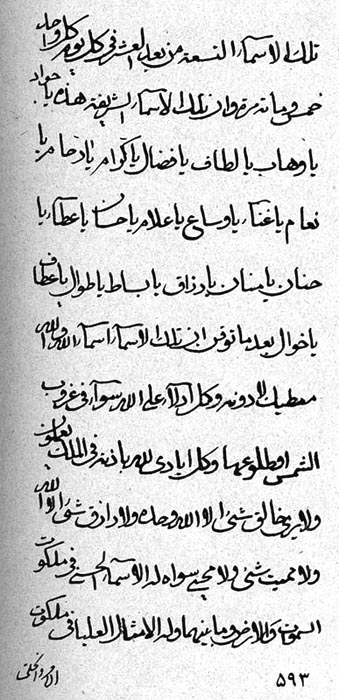 تلك الاسماء التسعة من بعد العشر فى كل يوم كل واحد
خمس وما تة مرة وان تلك الاسماء الشريفة هذه يا جواد
يا وهاب يا لطاف يا فضال يا كرام يا رحام يا
نعام يا غناء يا وساع يا علام يا حسان يا عطاء يا
حنان يا منان يا رزاق يا بساط يا طوال يا عطاف
يا خوال بعد ما توقن ان تلك الاسماء اسماء الله والله
معطيك لا دونه وكل ادلاء على الله سواء فى غروب
الشمس او طلوعها وكل ايادى لله باذنه فى الملك يعملون
ولا يرى خالق شئ الا الله وحده ولا رازق شئ الا الله
ولا مميت شئ ولا محيى سواه له الاسماء الحسنى فى ملكوت
السموات والارض وما بينهما وله الامثال العليا فى ملكوت
الامر والخلق
٥٩٣